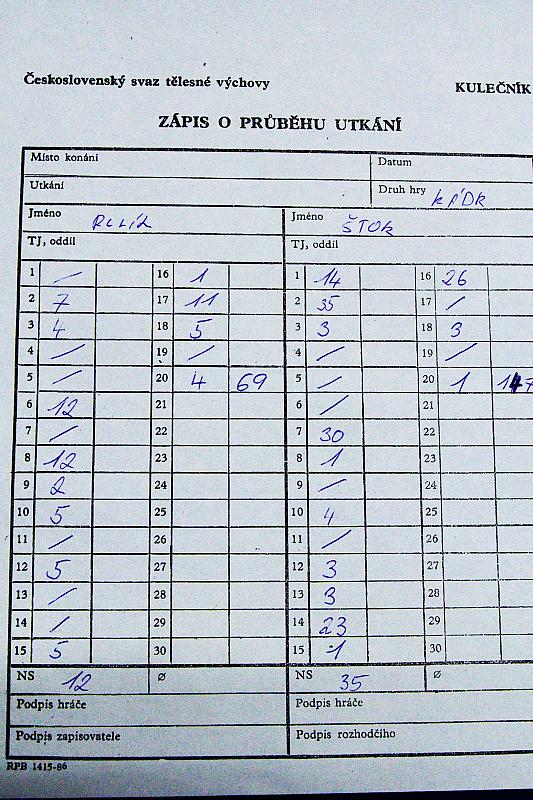 Československý svaz tělesné výchovy
KULEČNÍK
ZÁPIS O PRŮBĚHU UTKÁNÍ
Místo konání Datum
Utkání Druh hry KÁDR
Jméno Jméno ŠTOK
TJ, oddíl TJ, oddíl
1 / 16 1 1 14 16 26
2 7 17 11 2 35 17 /
3 4 18 5 3 3 18 3
4 / 19 / 4 / 19 /
5 / 20 4 69 5 / 20 1 147
6 12 21 6 / 21
7 / 22 7 30 22
8 12 23 8 1 23
9 2 24 9 / 24
10 5 25 10 4 25
11 / 26 11 / 26
12 5 27 12 3 27
13 / 28 13 3 28
14 / 29 14 23 29
15 5 30 15 1 30
NS 12 ø NS 35 ø
Podpis hráče Podpis hráče
Podpis zapisovatele Podpis rozhodčího
RPB 1415-86